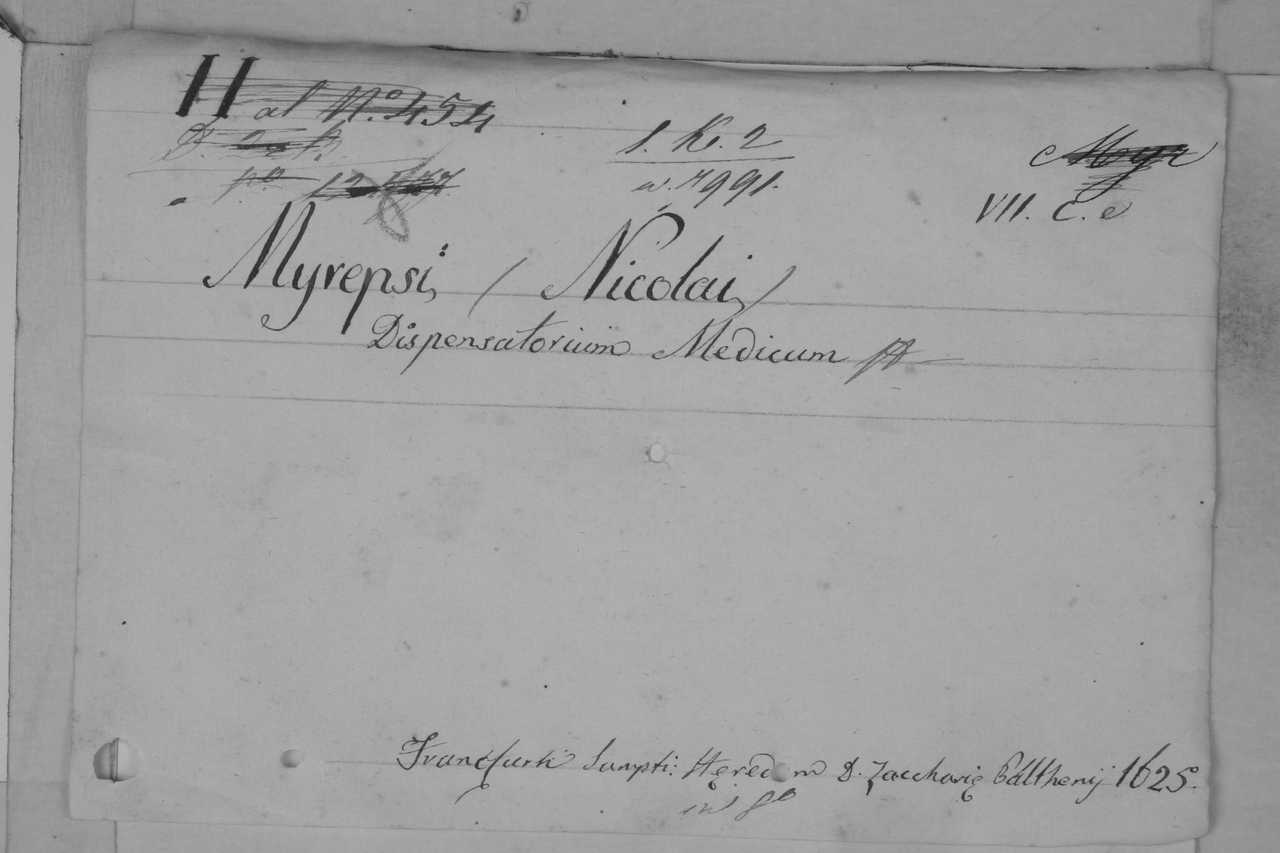 H al N.o 454
S. K. 2
VII. C. e
Myrepsi, (Nicolai,)
Dispensatorium Medicum
Francfurti Sumpti: Heredum D. Zaccharię Palthenij 1625.
in 8o